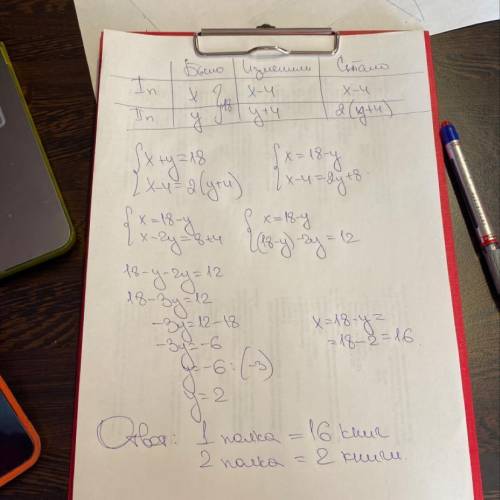 Было Изменили Стало
Iп x } 18 x-4 x-4
IIп y y+4 2(y+4)
{ x+y=18 { x=18-y
x-4=2(y+4) x-4=2y+8.
{ x=18-y { x=18-y
x-2y=8+4 (18-y)-2y=12
18-y-2y=12
18-3y=12
-3y=12-18 x=18-y=
-3y=-6 =18-2=16.
y=-6:(-3)
y=2
Ответ: 1 полка = 16 книг
2 полка = 2 книги.